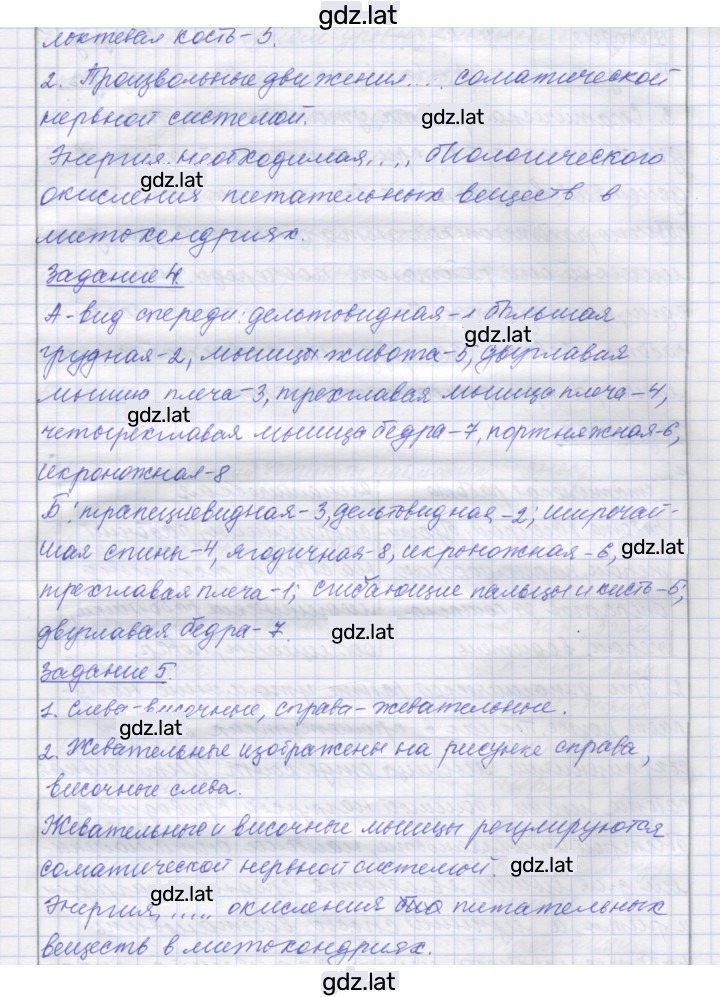 gdz.lat
локтевая кость-5.
2. Произвольные движения... соматической
нервной системой. gdz.lat
Энергия необходимая.... биологического
gdz.lat
окисления питательных веществ в
митохондриях.
Задание 4.
А-вид спереди: дельтовидная-1 большая
gdz.lat
грудная-2, мышцы живота-5, двуглавая
мышцы плеча-3, трехглавая мышца плеча-4,
gdz.lat
четырехглавая мышца бедра-7, портняжная-6,
икроножная-8
Б: трапециевидная-3, дельтовидная-2; широчай-
шая спины-4, ягодичная-8, икроножная-6, gdz.lat
трехглавая плеча-1; сгибающие пальцы и кисть-5,
двуглавая бедра-7. gdz.lat
Задание 5.
1. Слева-височные, справа-жевательные.
gdz.lat
2. Жевательные изображены на рисунке справа,
височные слева.
Жевательные и височные мышцы регулируются
соматической нервной системой. gdz.lat
gdz.lat
Энергия...... окисления питательных
веществ в митохондриях.
gdz.lat